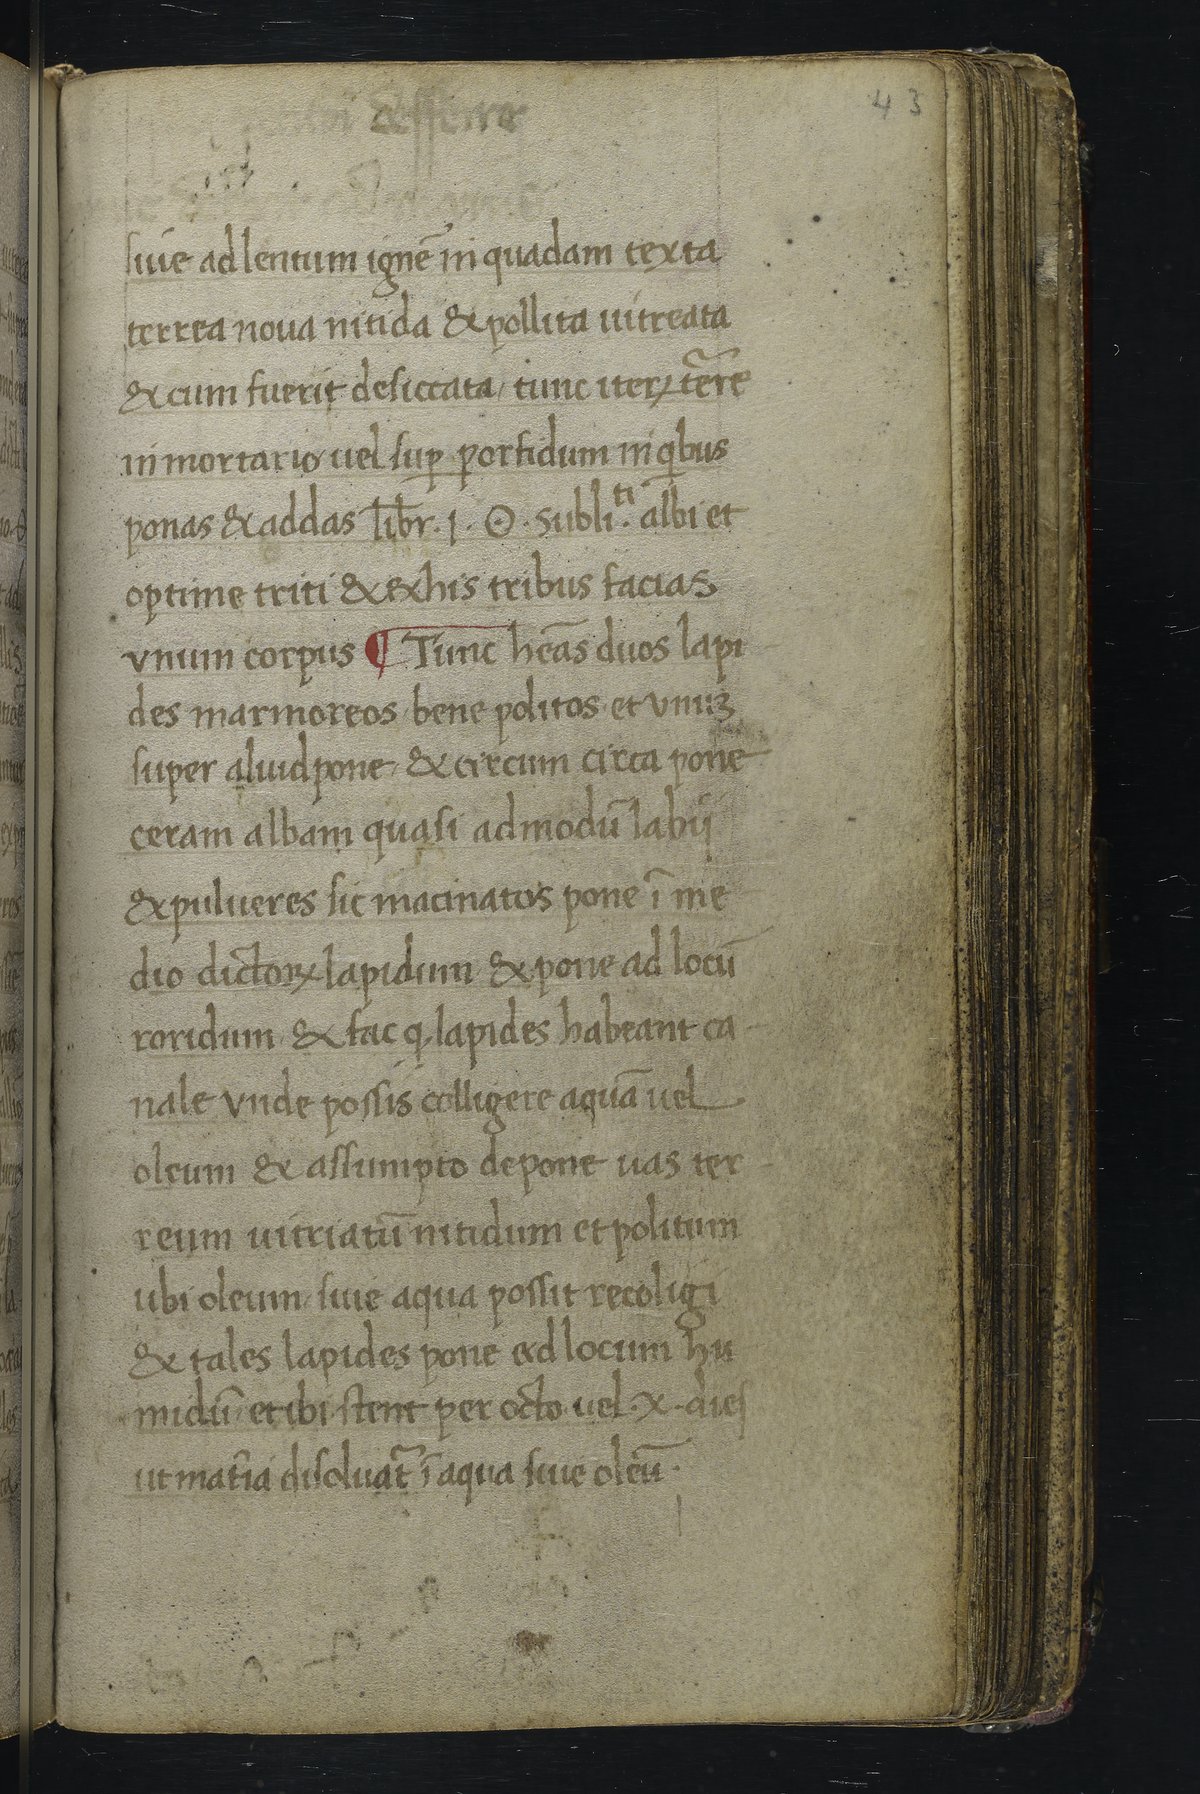 43
siue ad lentum ignē in quadam texta
terrea noua nitida & pollita uitreata
& cum fuerit desiccata / tunc iterꝝ tēre
in mortario uel suꝑ porfidum in qͥbus
ponas & addas libr. j. ☉. subli.ti albi et
optime triti & ex his tribus facias
vnum corpus ¶ Tunc hēas duos lapi
des marmoreos / bene politos et vnuꝫ
super aliud pone / & circum circa pone
ceram albam quasi ad modū labij
& pulueres sic macinatos pone ī me
dio dictoꝝ lapidum & pone ad locū
roridum & fac q̨ lapides habeant ca
nale vnde possis colligere aquā uel
oleum & assumpto depone uas ter
reum uitriatū nitidum et politum
ubi oleum / siue aqua possit recoligi
& tales lapides pone ad locum hu
midū / et ibi stent per octo uel . x . dies
ut mat̄ia disoluat᷑ ī aqua siue oleū .